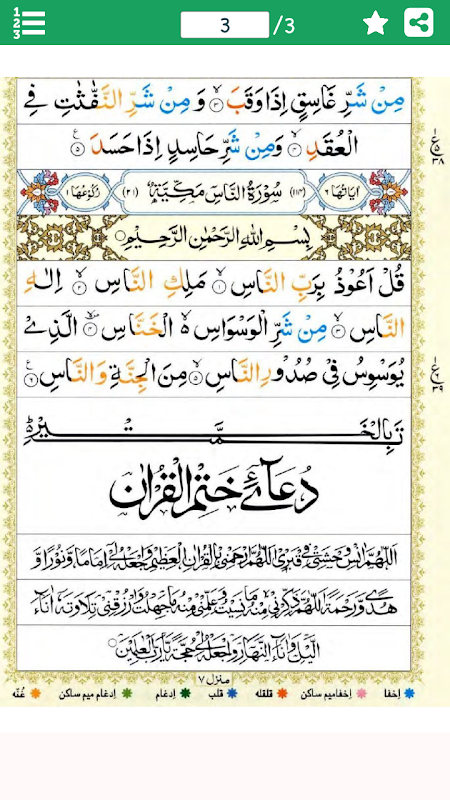 1 2 3
3 /3
مِنْ شَرِّ غَاسِقٍ اِذَا وَقَبَ ۙ۳ وَ مِنْ شَرِّ النَّفّٰثٰتِ فِي
الْعُقَدِ ۙ۴ وَمِنْ شَرِّ حَاسِدٍ اِذَا حَسَدَ ۵
ع ۵ ۳۸
اٰيَاتُهَا ۶ (۱۱۴) سُوْرَةُ النَّاسِ مَكِّيَّةٌ (۲۱) رُكُوْعُهَا ۱
بِسْمِ اللهِ الرَّحْمٰنِ الرَّحِيْمِ
قُلْ اَعُوْذُ بِرَبِّ النَّاسِ ۙ۱ مَلِكِ النَّاسِ ۙ۲ اِلٰهِ
النَّاسِ ۙ۳ مِنْ شَرِّ الْوَسْوَاسِ ۙ۬ الْخَنَّاسِ ۪ۙ۴ الَّذِيْ
يُوَسْوِسُ فِيْ صُدُوْرِ النَّاسِ ۙ۵ مِنَ الْجِنَّةِ وَالنَّاسِ ۶
ع ۶ ۳۹
تَمَّتْ بِالْخَيْرِ
دُعَآئے خَتْمِ الْقُرْاٰن
اَللّٰهُمَّ اٰنِسْ وَحْشَتِيْ فِيْ قَبْرِيْ اَللّٰهُمَّ ارْحَمْنِيْ بِالْقُرْاٰنِ الْعَظِيْمِ وَاجْعَلْهُ لِيْ اِمَامًا وَّنُوْرًا وَّ
هُدًى وَّرَحْمَةً اَللّٰهُمَّ ذَكِّرْنِيْ مِنْهُ مَا نَسِيْتُ وَعَلِّمْنِيْ مِنْهُ مَا جَهِلْتُ وَارْزُقْنِيْ تِلَاوَتَهٗ اٰنَآءَ
الَّيْلِ وَاٰنَآءَ النَّهَارِ وَاجْعَلْهُ لِيْ حُجَّةً يَّا رَبَّ الْعٰلَمِيْنَ
منزل ۷
اِخفا اِخفامیم ساکن قلقله قلب اِدغام اِدغام میم ساکن غُنّه